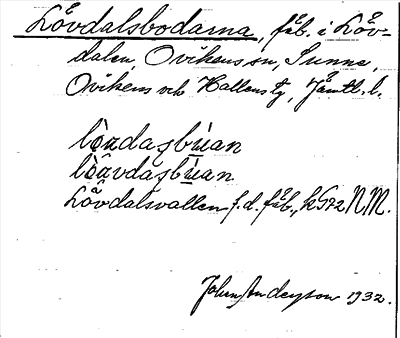 Lövdalsbodarna, fäb. i Löv-
dalen, Ovikens sn, Sunne,
Ovikens och Hallens tg, Jämtl. l.
lövdasbùan
Lövdalsvallen f.d. fäb., k 572 NM.
John Anderson 1932.